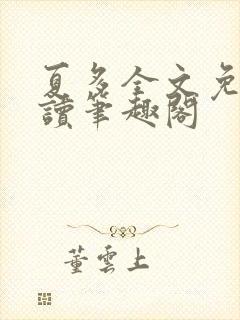 夏多全文免
讀筆趣閣
董雲上